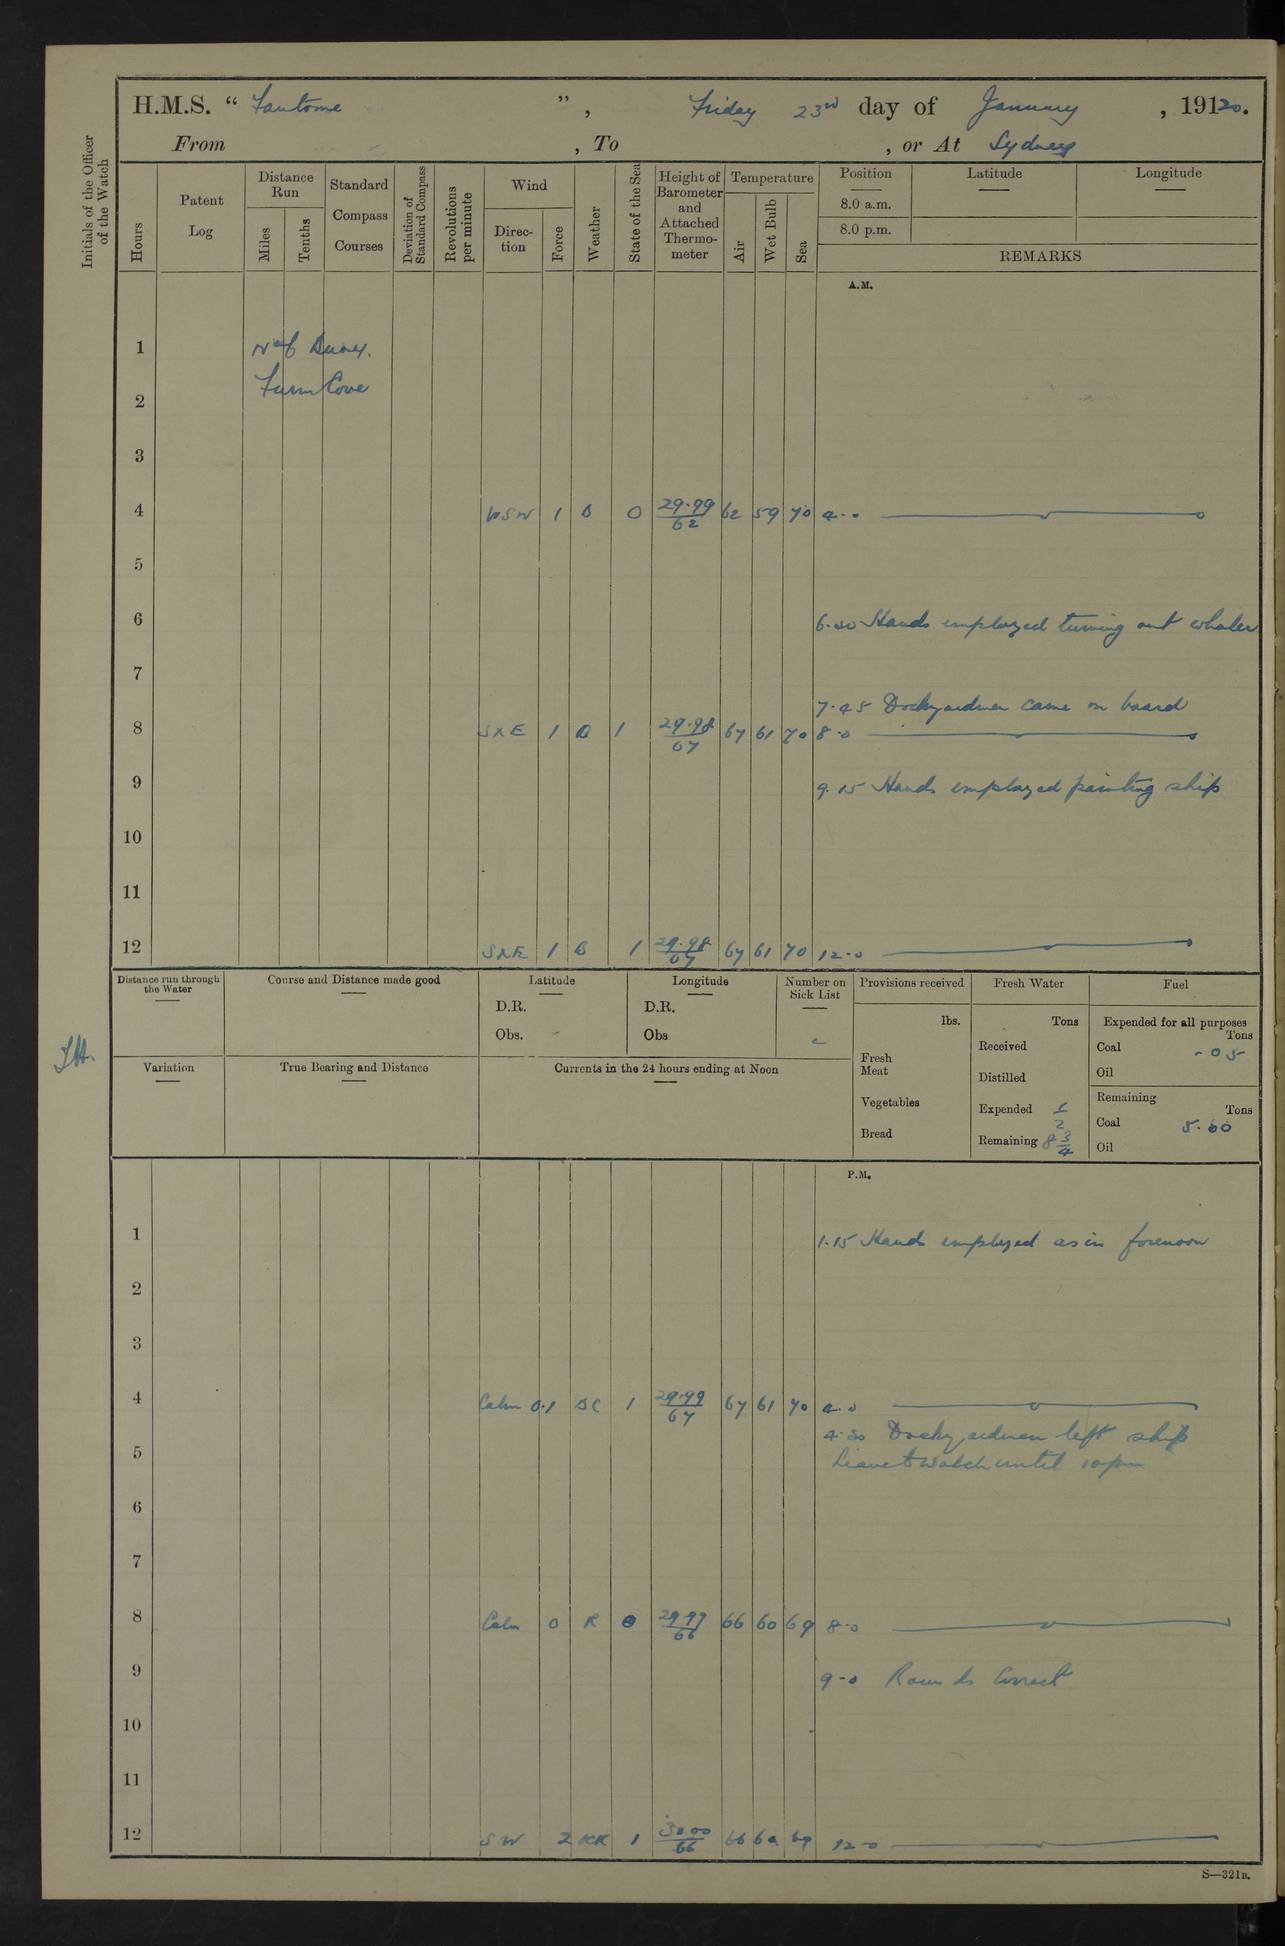 H.M.S. “ Fantome ” , Friday 23rd day of January , 19120.
From , To , or At Sydney
Initials of the Officer of the Watch
Hours
Patent Log
Distance Run
Miles
Tenths
Standard Compass Courses
Deviation of Standard Compass
Revolutions per minute
Wind
Direction
Force
Weather
State of the Sea
Height of Barometer and Attached Thermometer
Temperature
Air
Wet Bulb
Sea
Position Latitude Longitude
8.0 a.m.
8.0 p.m.
REMARKS
A.M.
1 No 6 Buoy.
2 Farm Cove
3
4 WSW 1 B 0 29.99/62 62 59 70 4.0
5
6 6.30 Hands employed turning out whaler
7
7.45 Dockyardmen came on board
8 SxE 1 B 1 29.98/67 67 61 70 8.0
9 9.15 Hands employed painting ship
10
11
12 SxE 1 B 1 29.98/67 67 61 70 12.0
Distance run through the Water
Course and Distance made good
Latitude
D.R.
Obs.
Longitude
D.R.
Obs
Number on Sick List
Provisions received
lbs.
Fresh Meat
Vegetables
Bread
Fresh Water
Tons
Received
Distilled
Expended 1/2
Remaining 8 3/4
Fuel
Expended for all purposes
Tons
Coal - 05
Oil
Remaining
Tons
Coal 5.60
Oil
Variation
True Bearing and Distance
Currents in the 24 hours ending at Noon
P.M.
1 1.15 Hands employed as in forenoon
2
3
4 Calm 0.1 BC 1 29.99/67 67 61 70 4.0
4.30 Dockyardmen left ship
5 Leave to watch until 10 pm
6
7
8 Calm 0 R 0 29.97/66 66 60 69 8.0
9 9.0 Rounds Correct
10
11
12 SW 2 RR 1 30.00/66 66 60 69 12.0
S—321B.